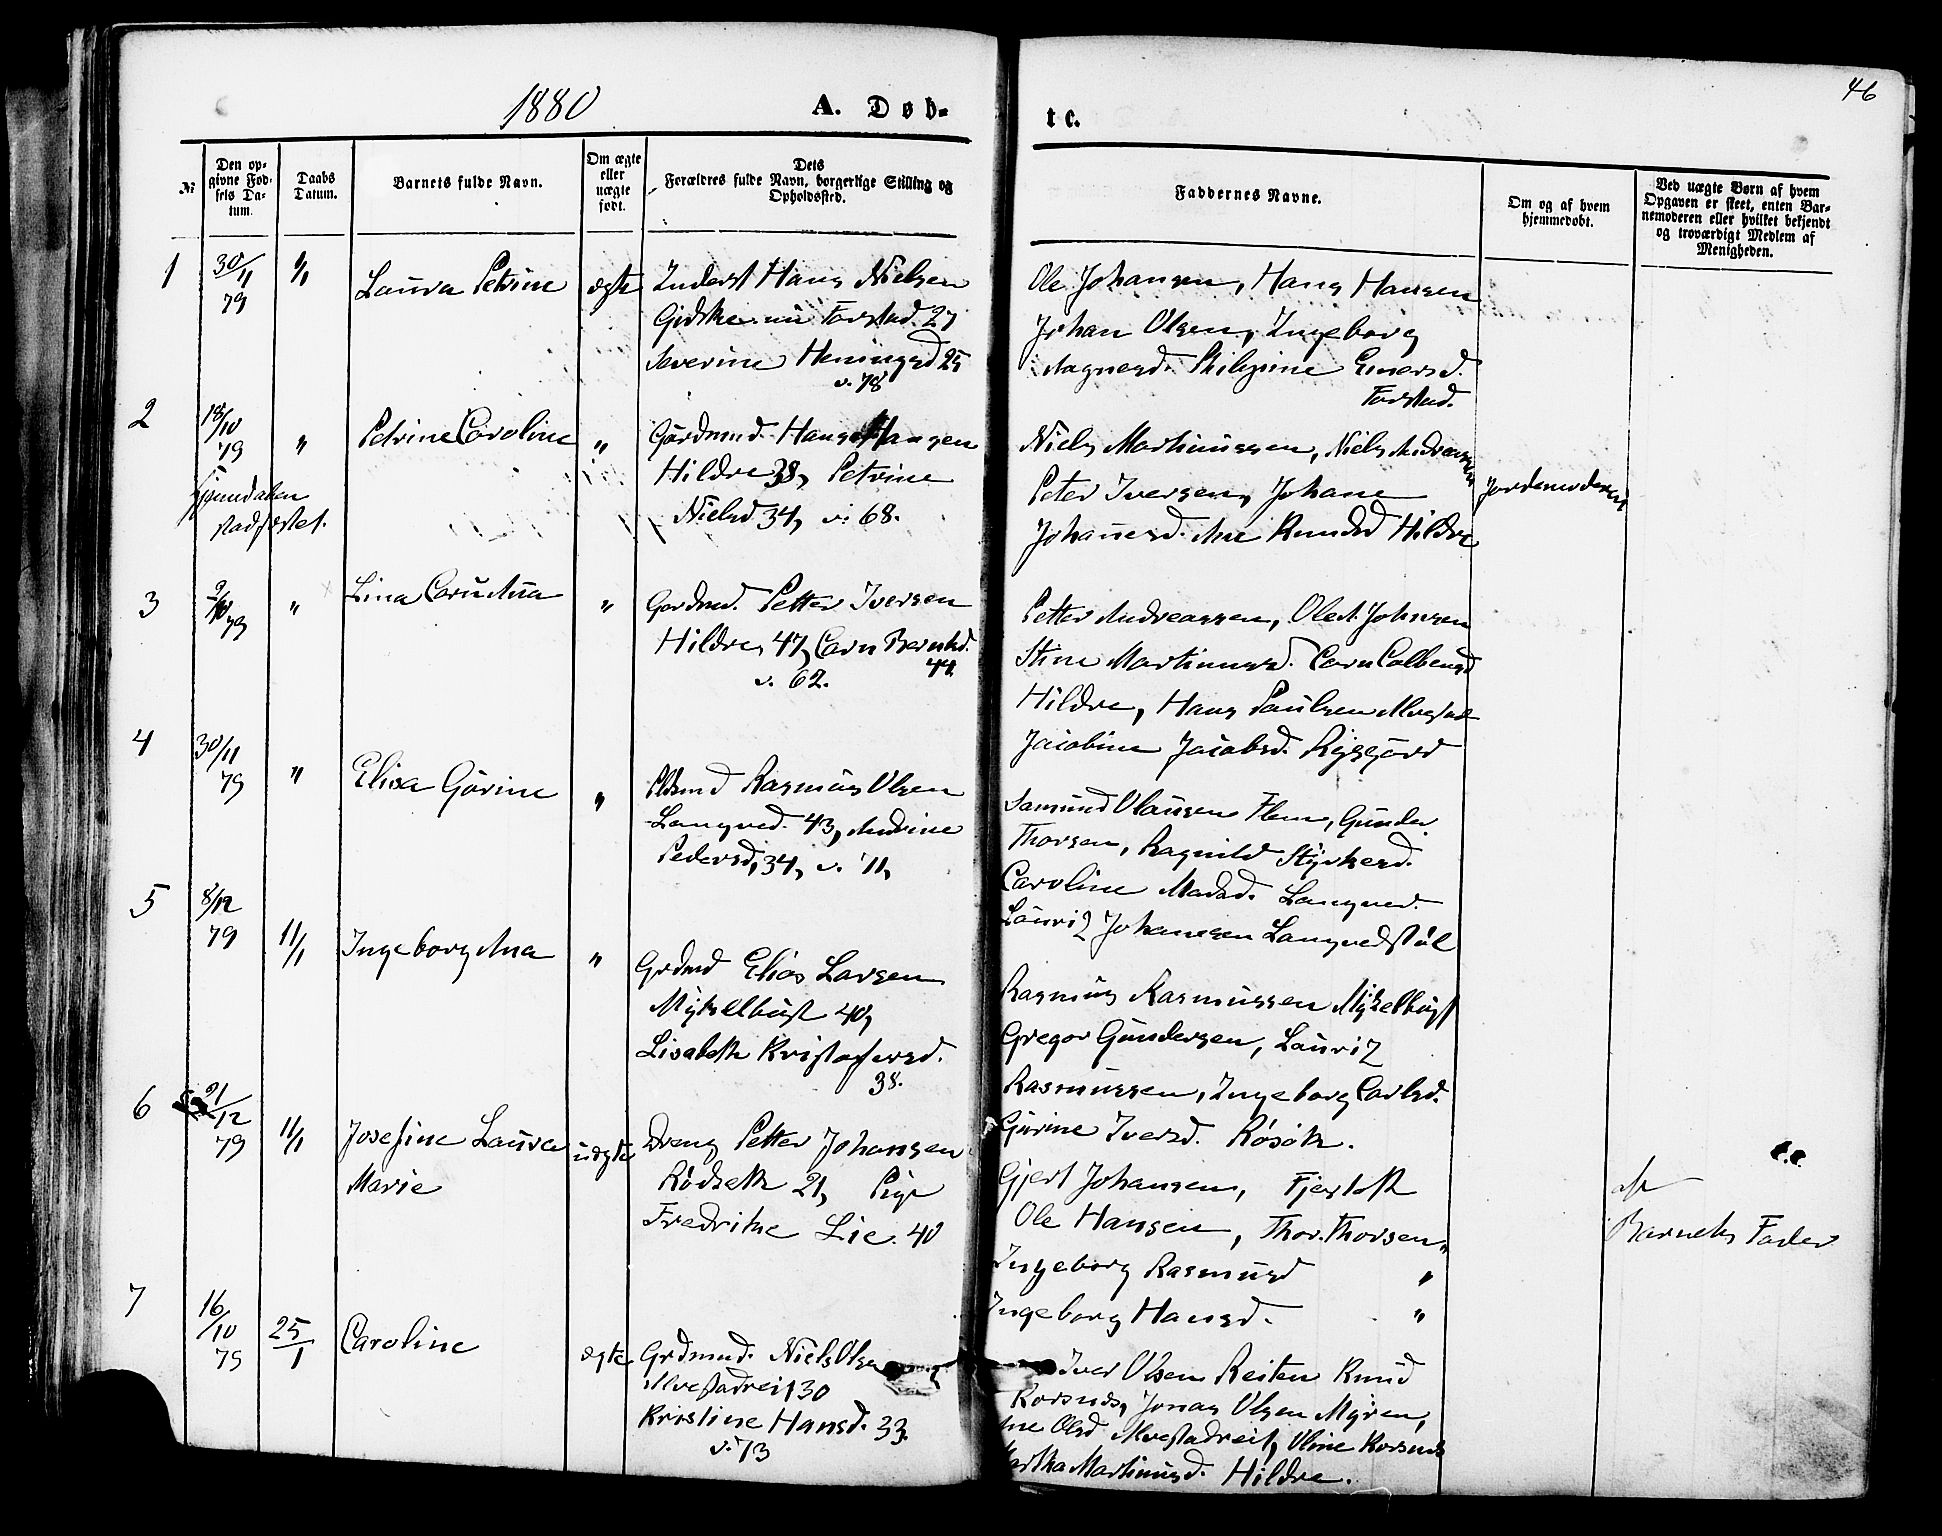 46
1880
A. Døb-
te.
№
Den op-
givne Fød-
sels Da-
tum.
Daabs
Datum.
Barnets fulde Navn.
Om ægte
eller
uægte
født.
Dets
Forældres fulde Navn, borgerlige Stilling og
Opholdssted.
Faddernes Navne.
Om og af hvem
hjemmedøbt.
Ved uægte Børn af hvem
Opgaven er skeet, enten Bar-
nemoderen eller hvilket bekjendt
og troværdigt Medlem af
Menigheden.
1
30/11
79
1/1
Laura Petrine
ægte
Inderst Hans Nielsen
Gidske nu Farstad 27
Severine Heningsd 25
v. 78
Ole Johansen, Hans Hansen
Johan Olsen, Ingeborg
Magnesd. Philipine Einersd.
Farstad.
2
18/10
79
"
Petrine Caroline
"
Gårdmd. Hans Hansen
Hildre 38, Petrine
Nielsd. 34, v. 68.
Niels Martinussen, Niels Andreassen
Peter Iversen, Johane
Johanesd. Ane Knudsd Hildre
Jordemoderen
stadfæstet.
3
79
"
Lina Carn Ana
"
Gardmd. Petter Iversen
Hildre 47, Carn Berntsd.
44
v. 62.
Petter Andreassen, Ole A. Johnsen
Stine Martinusd. Carn Colbensd
Hildre, Hans Paulsen Alvestad
Jacobine Jacobsd. Rysgård
4
30/11
79
"
Elisa Gurine
"
Pldsmd Rasmus Olsen
Langved. 43, Andrine
Pedersd, 34, v. '11,
Samund Olausen Flem, Gunder
Thorsen, Ragnild Styrkersd.
Caroline Madsd. Langved.
Lauriz Johansen Langvedstøl
5
8/12
79
11/1
Ingeborg Ana
"
Grdmd Elias Larsen
Myklebust 40,
Lisabeth Kristoffersd.
38.
Rasmus Rasmussen Myklebust
Gregor Gundersen, Lauriz
Rasmussen, Ingeborg Carlsd.
Gurine Iversd. Røsok.
6
21/12
79
11/1
Josefine Laura
Marie
uægte
Dreng Petter Johansen
Rødseth 21, Pige
Fredrike Lie. 40
Gjert Johansen, Fjertoft
Ole Hansen, Thor. Thorsen "
Ingeborg Rasmusd "
Ingeborg Hansd. "
af
Barnets Fader
7
16/10
79
25/1
Caroline
ægte
Grdmnd. Niels Olsen
Alvestadreit 30
Kristine Hansd. 33.
v. 73
Iver Olsen Reiten Knud
Korsnes, Jonas Olsen Myren,
Olsd Alvestadreit, Oline Korsnes
Martha Martinusd. Hildre.